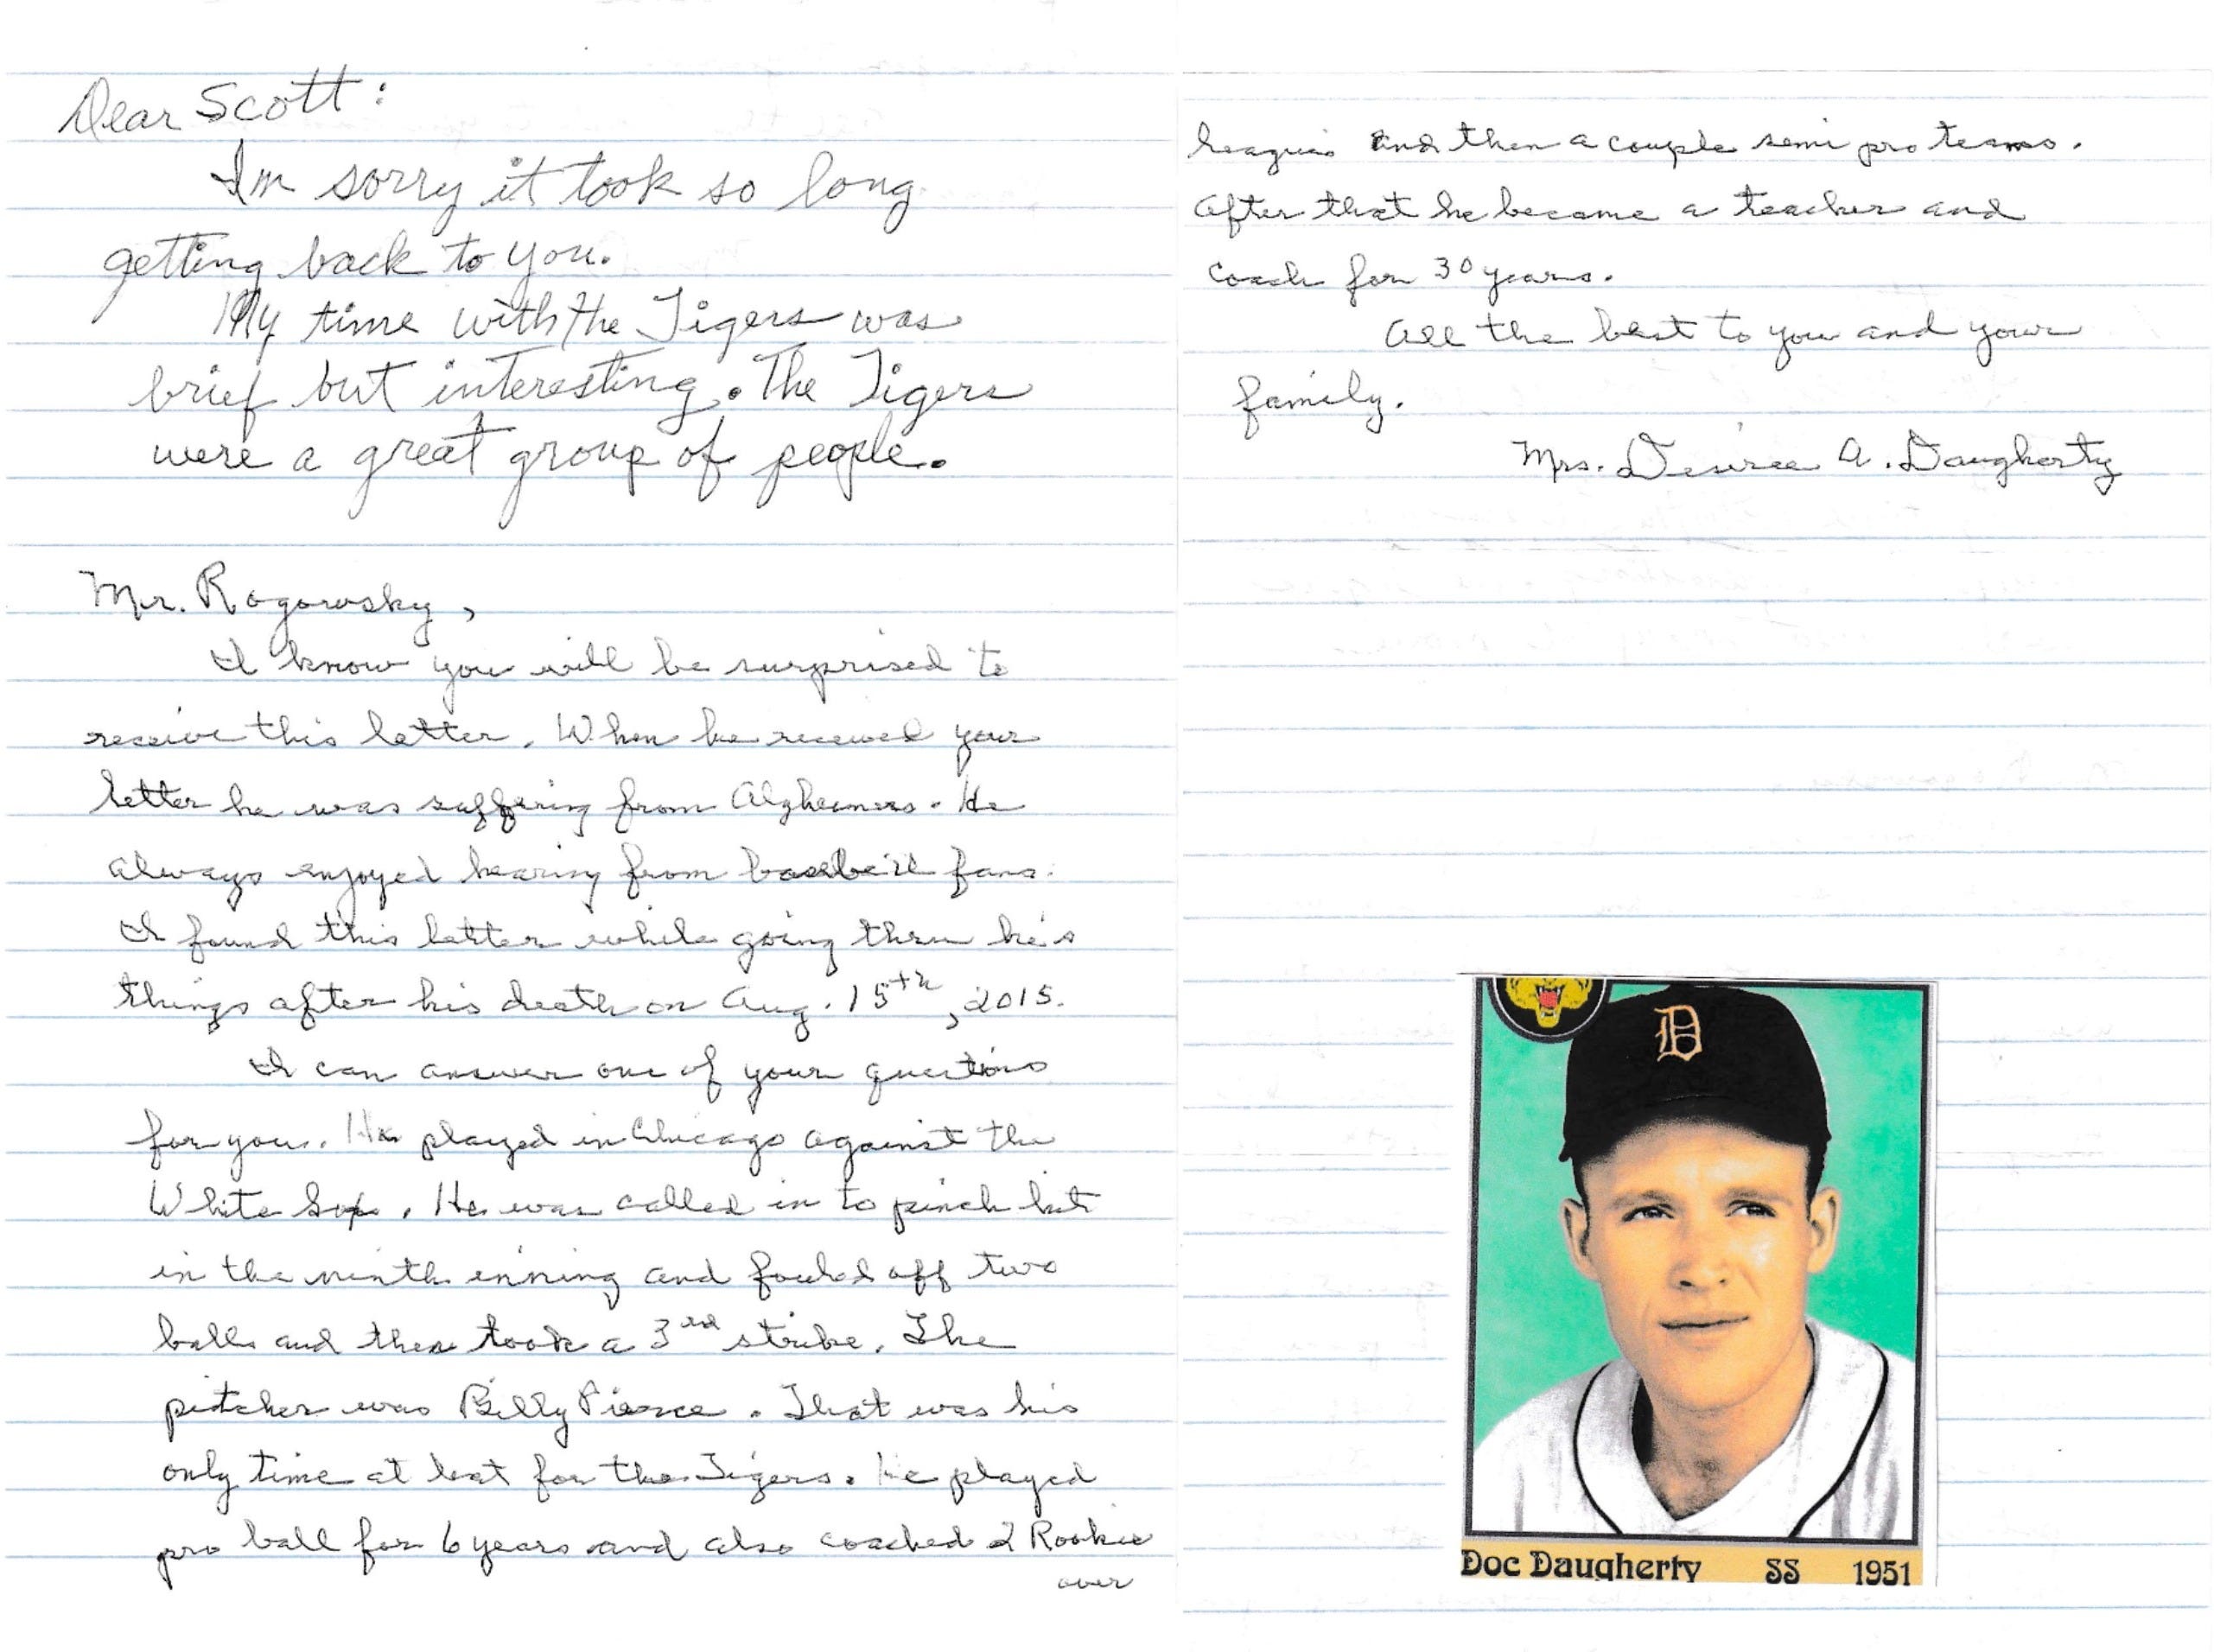 Dear Scott:
Im sorry it took so long
getting back to you.
My time with the Tigers was
brief but interesting. The Tigers
were a great group of people.
Mr. Rogowsky,
I know you will be surprised to
receive this letter. When he received your
letter he was suffering from Alzheimers. He
always enjoyed hearing from baseball fans.
I found this letter while going thru his
things after his death on Aug. 15th, 2015.
I can answer one of your questions
for you. He played in Chicago against the
White Sox. He was called in to pinch hit
in the ninth inning and fouled off two
balls and then took a 3rd strike. The
pitcher was Billy Pierce. That was his
only time at bat for the Tigers. He played
pro ball for 6 years and also coached 2 Rookie
over
leagues and then a couple semi pro teams.
After that he became a teacher and
coach for 30 years.
All the best to you and your
family.
Mrs. Desiree A. Daugherty
D
Doc Daugherty SS 1951